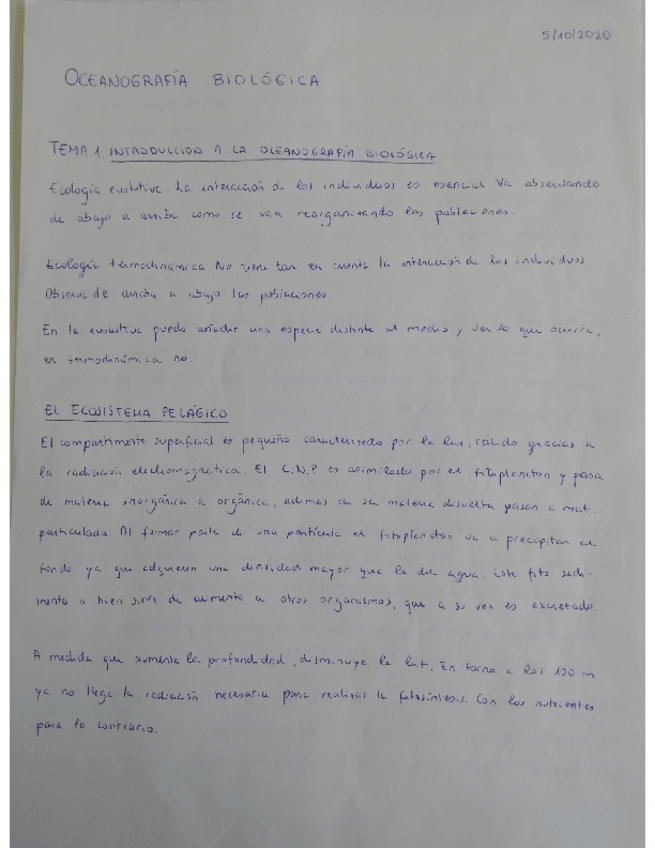 5/10/2020
OCEANOGRAFÍA BIOLÓGICA
TEMA 1: INTRODUCCION A LA OCEANOGRAFÍA BIOLÓGICA
Ecología evolutiva. La interacción de los individuos es esencial Va observando
de abajo a arriba como se van reorganizando las poblaciones.
Ecología termodinámica No tiene tan en cuenta la interacción de los individuos.
Observa de arriba a abajo las poblaciones
En la evolutiva puedo añadir una especie distinta al medio y ver lo que ocurre,
en termodinámica no.
EL ECOSISTEMA PELÁGICO
El compartimento superficial es pequeño caracterizado por la luz, cálido gracias a
la radiación electromagnética. El C,N,P es asimilado por el fitoplancton y pasa
de materia inorgánica a orgánica, ademas de ser materia disuelta pasan a mat.
particulada. Al formar parte de una partícula el fitoplancton va a precipitar al
fondo ya que adquieren una densidad mayor que la del agua. Este fito sedi-
menta o bien sirve de alimento a otros organismos, que a su vez es excretado.
A medida que aumenta la profundidad, disminuye la luz. En torno a los 150 m
ya no llega la radiación necesaria para realizar la fotosíntesis. Con los nutrientes
pasa lo contrario.